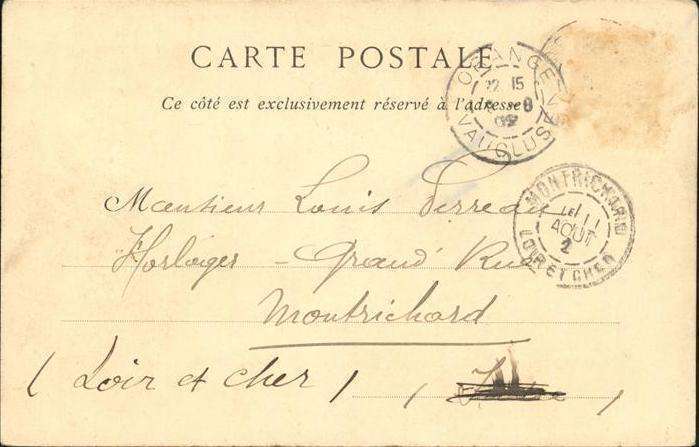 CARTE POSTALE
Ce côté est exclusivement réservé à l'adresse
ORANGE
22 15
8
02
VAUCLUSE
MONTRICHARD
11
AOUT
2
LOIR ET CHER
Monsieur Louis Perreau
Horloger - Grand' Rue
Montrichard
( Loir et cher )